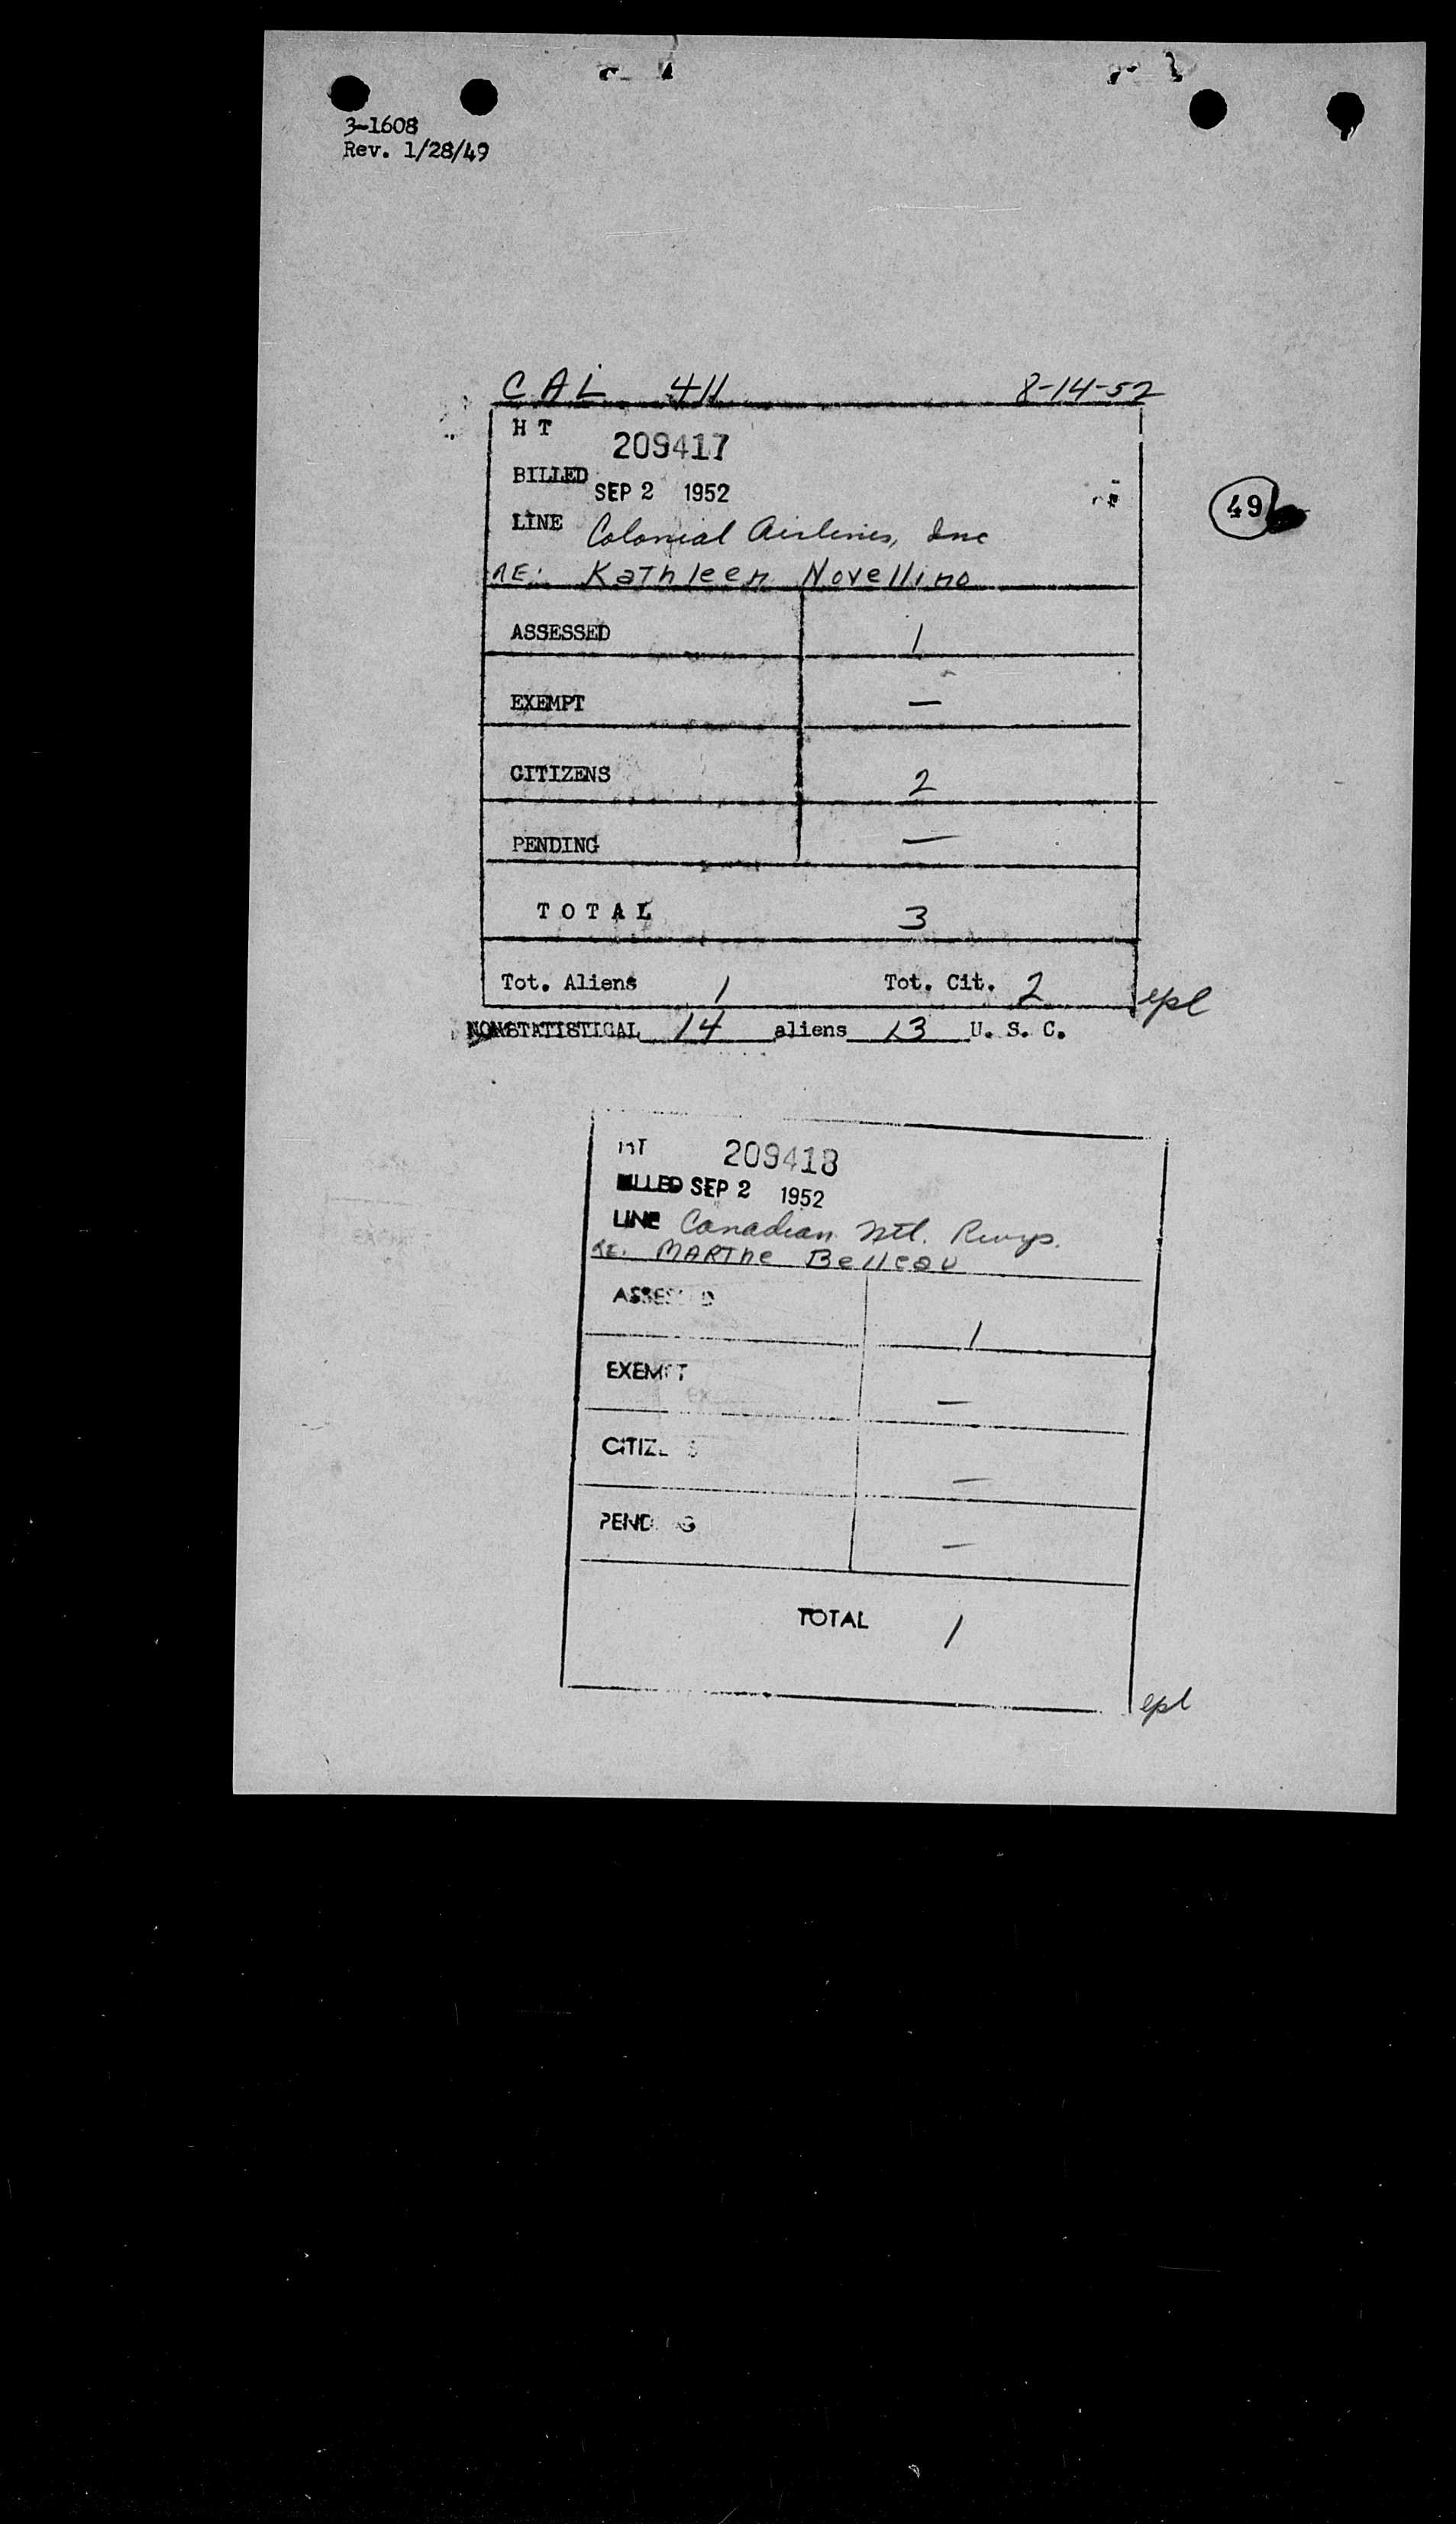 3-1608
Rev. 1/28/49
CAL 411 8-14-52
H T 209417
BILLED SEP 2 1952
49
LINE Colonial Airlines, Inc
RE: Kathleen Novellino
ASSESSED 1
EXEMPT —
CITIZENS 2
PENDING —
TOTAL 3
Tot. Aliens 1 Tot. Cit. 2 epl
NONSTATISTICAL 14 aliens 13 U. S. C.
HT 209418
BILLED SEP 2 1952
LINE Canadian Ntl. Rwys.
RE. MARThe Belleau
ASSESSED 1
EXEMPT —
CITIZENS —
PENDING —
TOTAL 1
epl